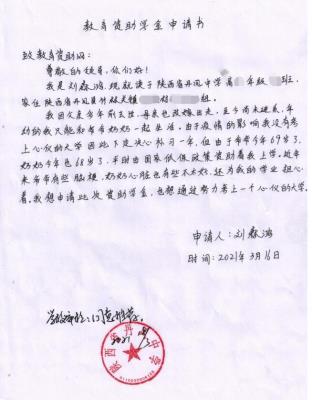 教育资助学金申请书
致教育资助网:
尊敬的领导,你们好!
我是刘森鸿,现就读于陕西省丹凤中学高年级班,
家住陕西省丹凤县竹林关镇组。
我因父亲早年去世,母亲也改嫁出走,至今尚未联系,年
幼的我只能和爷爷奶奶一起生活。由于疫情的影响我没有考
上心仪的大学因此下定决心补习一年,但由于爷爷今年69岁了,
奶奶今年也68岁了,平时由国家低保政策资助着我上学。近年
来爷爷有些脑梗,奶奶心脏也有些不太好,还为我的学业担心
着。我想申请此次资助学金,也想通过努力考上一个心仪的大学。
申请人:刘森鸿
时间:2021年3月16日
学校审核:同意推荐。
陕西省丹中学